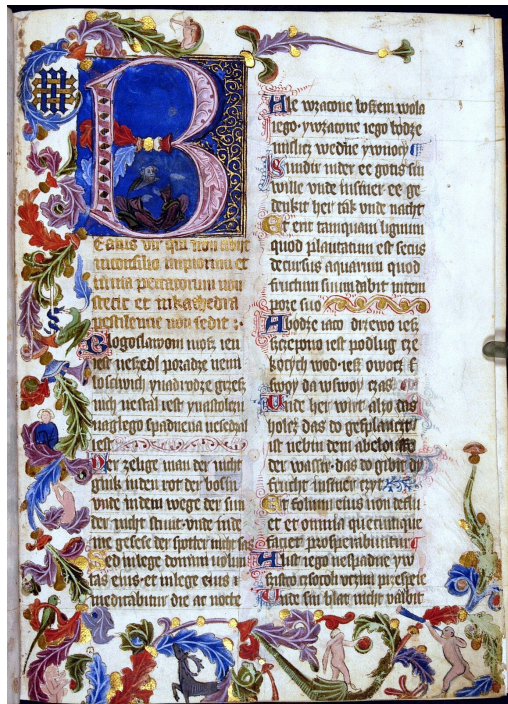 B
eatus vir qui non abijt
in consilio impiorum et
in via peccatorum non
stetit et in kathedra
pestilencie non sedit :·
Blogoslawoni mosz ien
iest ne szedl po radze nemi
losciwich y na drodze grzesz
nich ne stal iest y na stolczu
naglego spadnena ne sedzal
iest
Der zelige man der nicht
gink in den rot der bosin
vnde in dem wege der sun
der nicht stunt · vnde
me gesese der spotter nicht sas
Sed in lege domini volun
tas eius · et in lege eius
meditabitur die ac nocte
Ale w zacone bozem wola
iego · y w zacone iego bodze
mislicz we dne y w nocy
Sundir in der ee gotis sin
wille vnde in siner ee ge
denkit her tak vnde nacht
Et erit tamquam lignum
quod plantatum est secus
decursus aquarum quod
fructum suum dabit in tem
pore suo
A bodze iaco drzewo iesz
szczepono iest podlug cze
kocych wod · iesz owocz
swoy da w swoy czas
Unde her wirt alzo das
holcz das do gepflanczt
ist nebin dem abeloufe
der wassir · das do gibit dy
frucht in siner czyt
Et folium eius non deflu
et et omnia quecumque
faciet prosperabuntur
A list iego ne spadne y w
szistco czsocoli vczini przespeie
Unde sin blat nicht valbit